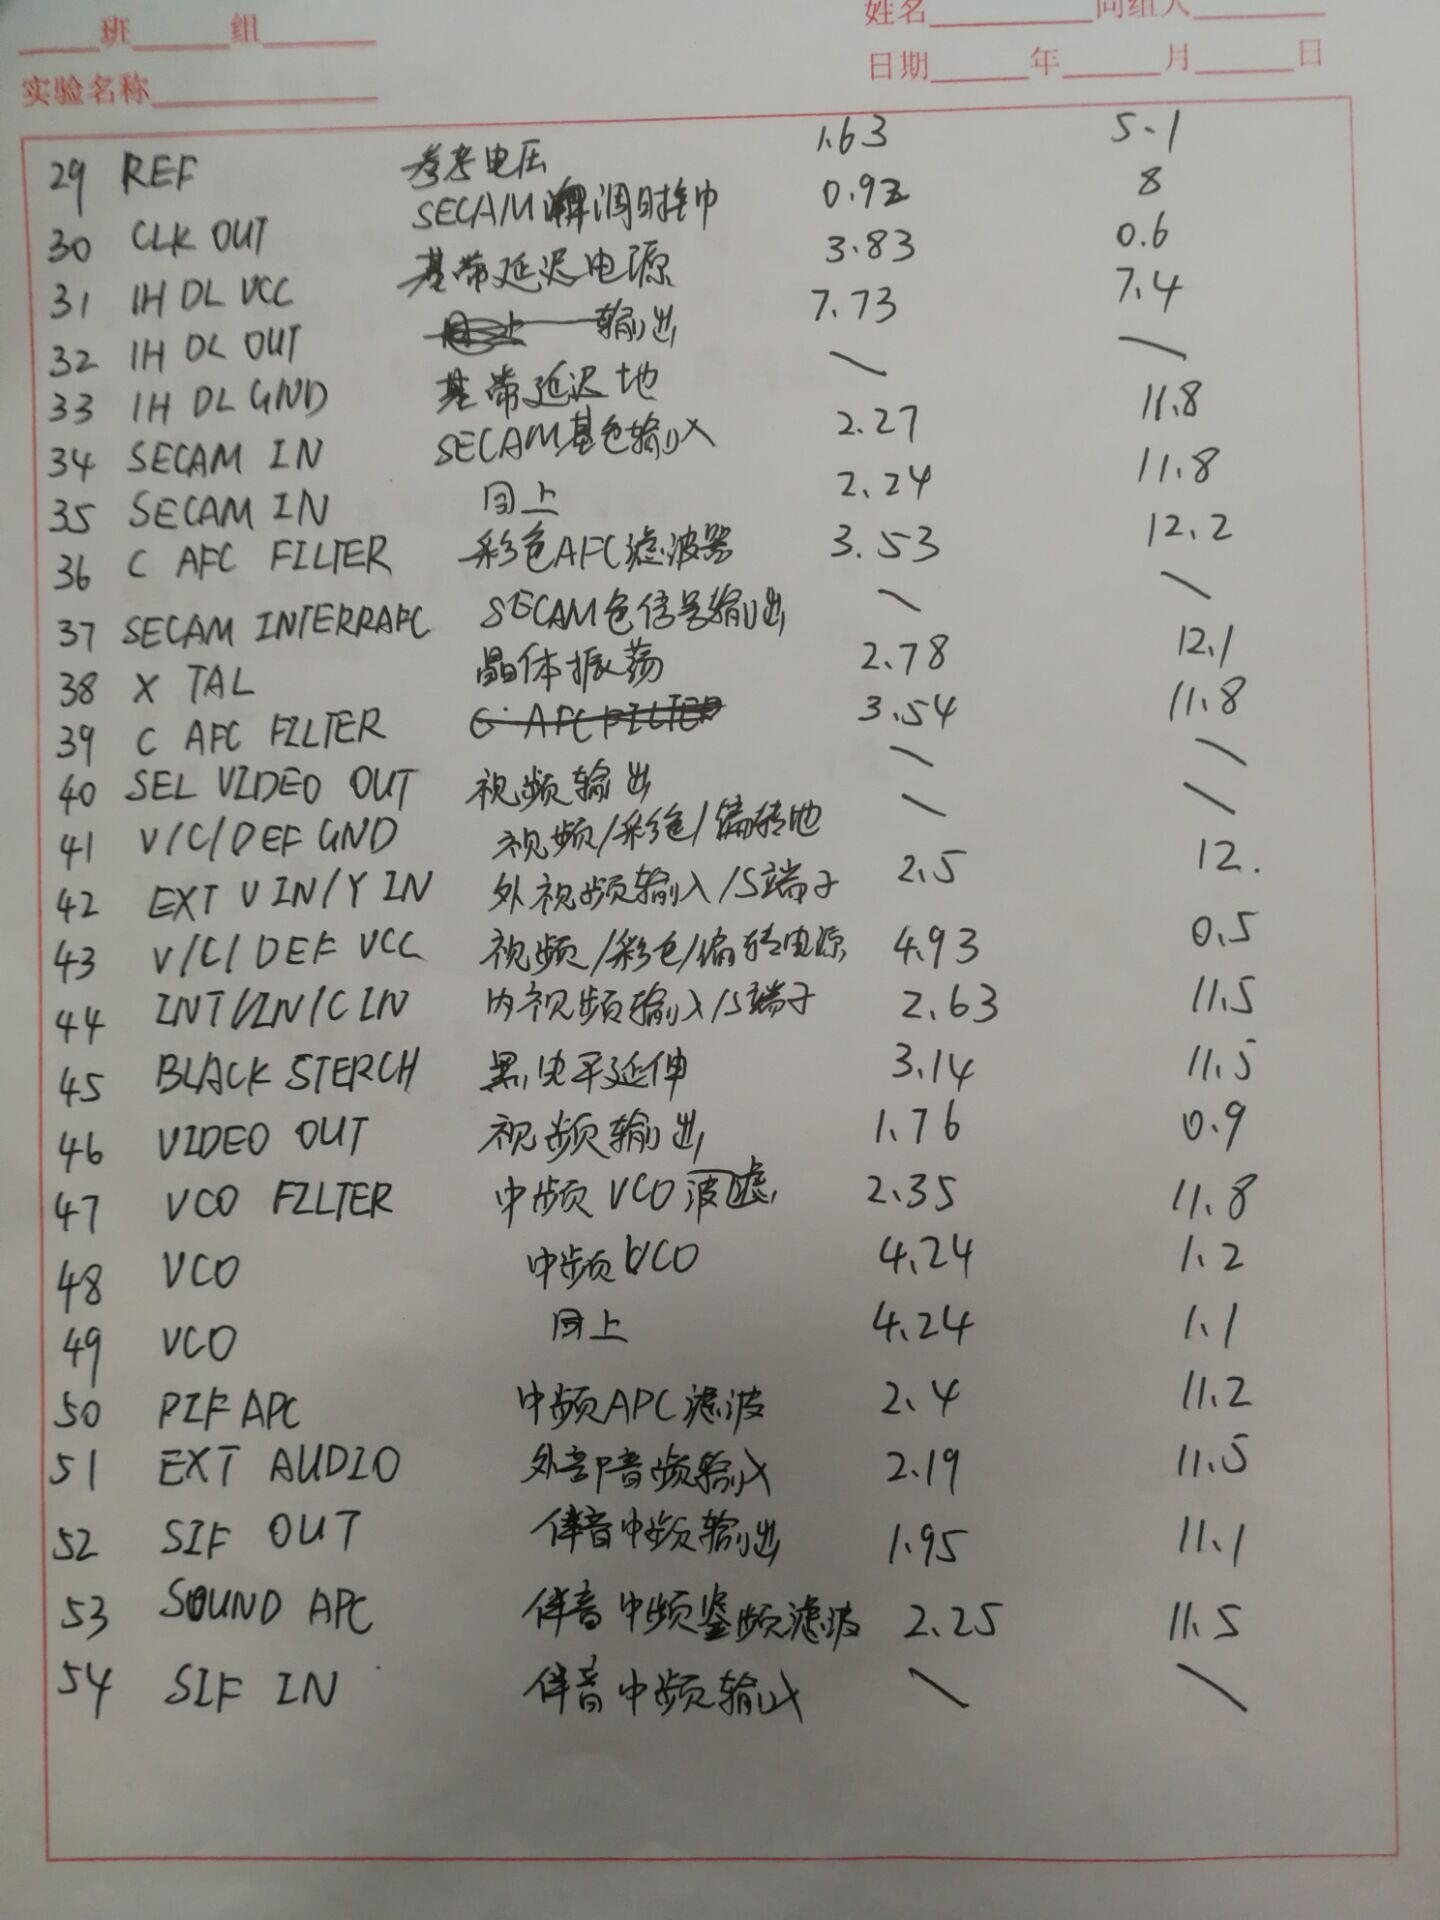 姓名 同组人
班 组
日期 年 月 日
实验名称
29 REF 参考电压 1.63 5.1
30 CLK OUT SECAM解调时钟 0.92 8
31 1H DL VCC 基带延迟电源 3.83 0.6
32 1H DL OUT 输出 7.73 7.4
33 1H DL GND 基带延迟地 \ \
34 SECAM IN SECAM基色输入 2.27 11.8
35 SECAM IN 同上 2.24 11.8
36 C AFC FILTER 彩色AFC滤波器 3.53 12.2
37 SECAM INTERRAFC SECAM色信号输出 \ \
38 X TAL 晶体振荡 2.78 12.1
39 C AFC FILTER 3.54 11.8
40 SEL VIDEO OUT 视频输出 \ \
41 V/C/DEF GND 视频/彩色/偏转地 \ \
42 EXT V IN/Y IN 外视频输入/S端子 2.5 12.
43 V/C/DEF VCC 视频/彩色/偏转电源 4.93 0.5
44 INT/VIN/C IN 内视频输入/S端子 2.63 11.5
45 BLACK STERCH 黑电平延伸 3.14 11.5
46 VIDEO OUT 视频输出 1.76 0.9
47 VCO FILTER 中频VCO波滤 2.35 11.8
48 VCO 中频VCO 4.24 1.2
49 VCO 同上 4.24 1.1
50 PIF APC 中频APC滤波 2.4 11.2
51 EXT AUDIO 外部音频输入 2.19 11.5
52 SIF OUT 伴音中频输出 1.95 11.1
53 SOUND APC 伴音中频鉴频滤波 2.25 11.5
54 SIF IN 伴音中频输入 \ \